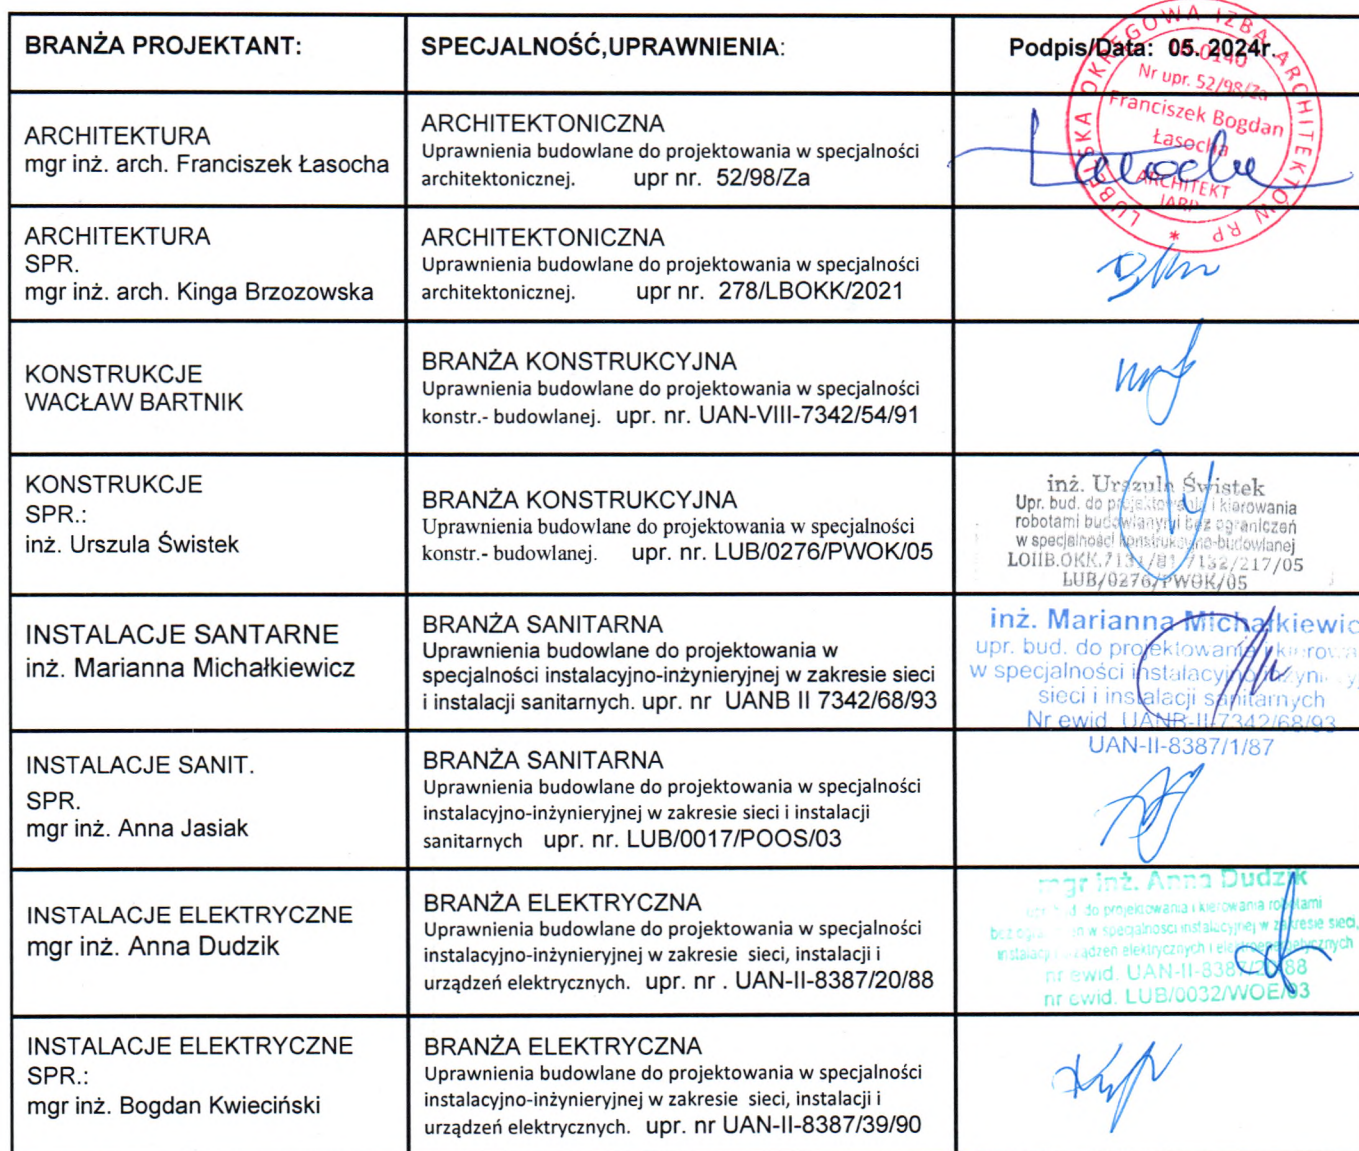 BRANŻA PROJEKTANT:
SPECJALNOŚĆ,UPRAWNIENIA:
Podpis/Data: 05. 2024r.
LUBELSKA OKRĘGOWA IZBA ARCHITEKTÓW RP *
Nr upr. 52/98/Za
Franciszek Bogdan
Łasocha
ARCHITEKT
ARCHITEKTURA
mgr inż. arch. Franciszek Łasocha
ARCHITEKTONICZNA
Uprawnienia budowlane do projektowania w specjalności
architektonicznej. upr nr. 52/98/Za
Łasocha
ARCHITEKTURA
SPR.
mgr inż. arch. Kinga Brzozowska
ARCHITEKTONICZNA
Uprawnienia budowlane do projektowania w specjalności
architektonicznej. upr nr. 278/LBOKK/2021
KONSTRUKCJE
WACŁAW BARTNIK
BRANŻA KONSTRUKCYJNA
Uprawnienia budowlane do projektowania w specjalności
konstr.- budowlanej. upr. nr. UAN-VIII-7342/54/91
KONSTRUKCJE
SPR.:
inż. Urszula Świstek
BRANŻA KONSTRUKCYJNA
Uprawnienia budowlane do projektowania w specjalności
konstr.- budowlanej. upr. nr. LUB/0276/PWOK/05
inż. Urszula Świstek
Upr. bud. do projektowania i kierowania
robotami budowlanymi bez ograniczeń
w specjalności konstrukcyjno-budowlanej
LOIIB.OKK.7131/81/7132/217/05
LUB/0276/PWOK/05
INSTALACJE SANTARNE
inż. Marianna Michałkiewicz
BRANŻA SANITARNA
Uprawnienia budowlane do projektowania w
specjalności instalacyjno-inżynieryjnej w zakresie sieci
i instalacji sanitarnych. upr. nr UANB II 7342/68/93
inż. Marianna Michałkiewic
upr. bud. do projektowania i kierowa
w specjalności instalacyjno-inżynieryj
sieci i instalacji sanitarnych
Nr ewid. UANB-II-7342/68/93
UAN-II-8387/1/87
INSTALACJE SANIT.
SPR.
mgr inż. Anna Jasiak
BRANŻA SANITARNA
Uprawnienia budowlane do projektowania w specjalności
instalacyjno-inżynieryjnej w zakresie sieci i instalacji
sanitarnych upr. nr. LUB/0017/POOS/03
INSTALACJE ELEKTRYCZNE
mgr inż. Anna Dudzik
BRANŻA ELEKTRYCZNA
Uprawnienia budowlane do projektowania w specjalności
instalacyjno-inżynieryjnej w zakresie sieci, instalacji i
urządzeń elektrycznych. upr. nr . UAN-II-8387/20/88
mgr inż. Anna Dudzik
upr. bud. do projektowania i kierowania robotami
bez ograniczeń w specjalności instalacyjnej w zakresie sieci,
instalacji i urządzeń elektrycznych i elektroenergetycznych
nr ewid. UAN-II-8387/20/88
nr ewid. LUB/0032/WOE/03
INSTALACJE ELEKTRYCZNE
SPR.:
mgr inż. Bogdan Kwieciński
BRANŻA ELEKTRYCZNA
Uprawnienia budowlane do projektowania w specjalności
instalacyjno-inżynieryjnej w zakresie sieci, instalacji i
urządzeń elektrycznych. upr. nr UAN-II-8387/39/90